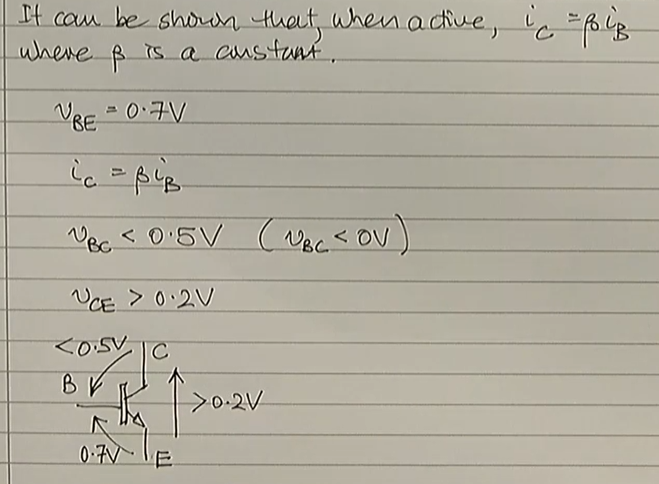 It can be shown that, when active, i_C = βi_B
where β is a constant.
v_BE = 0.7V
i_C = βi_B
v_BC < 0.5V (v_BC < 0V)
v_CE > 0.2V
<0.5V C
B >0.2V
0.7V E